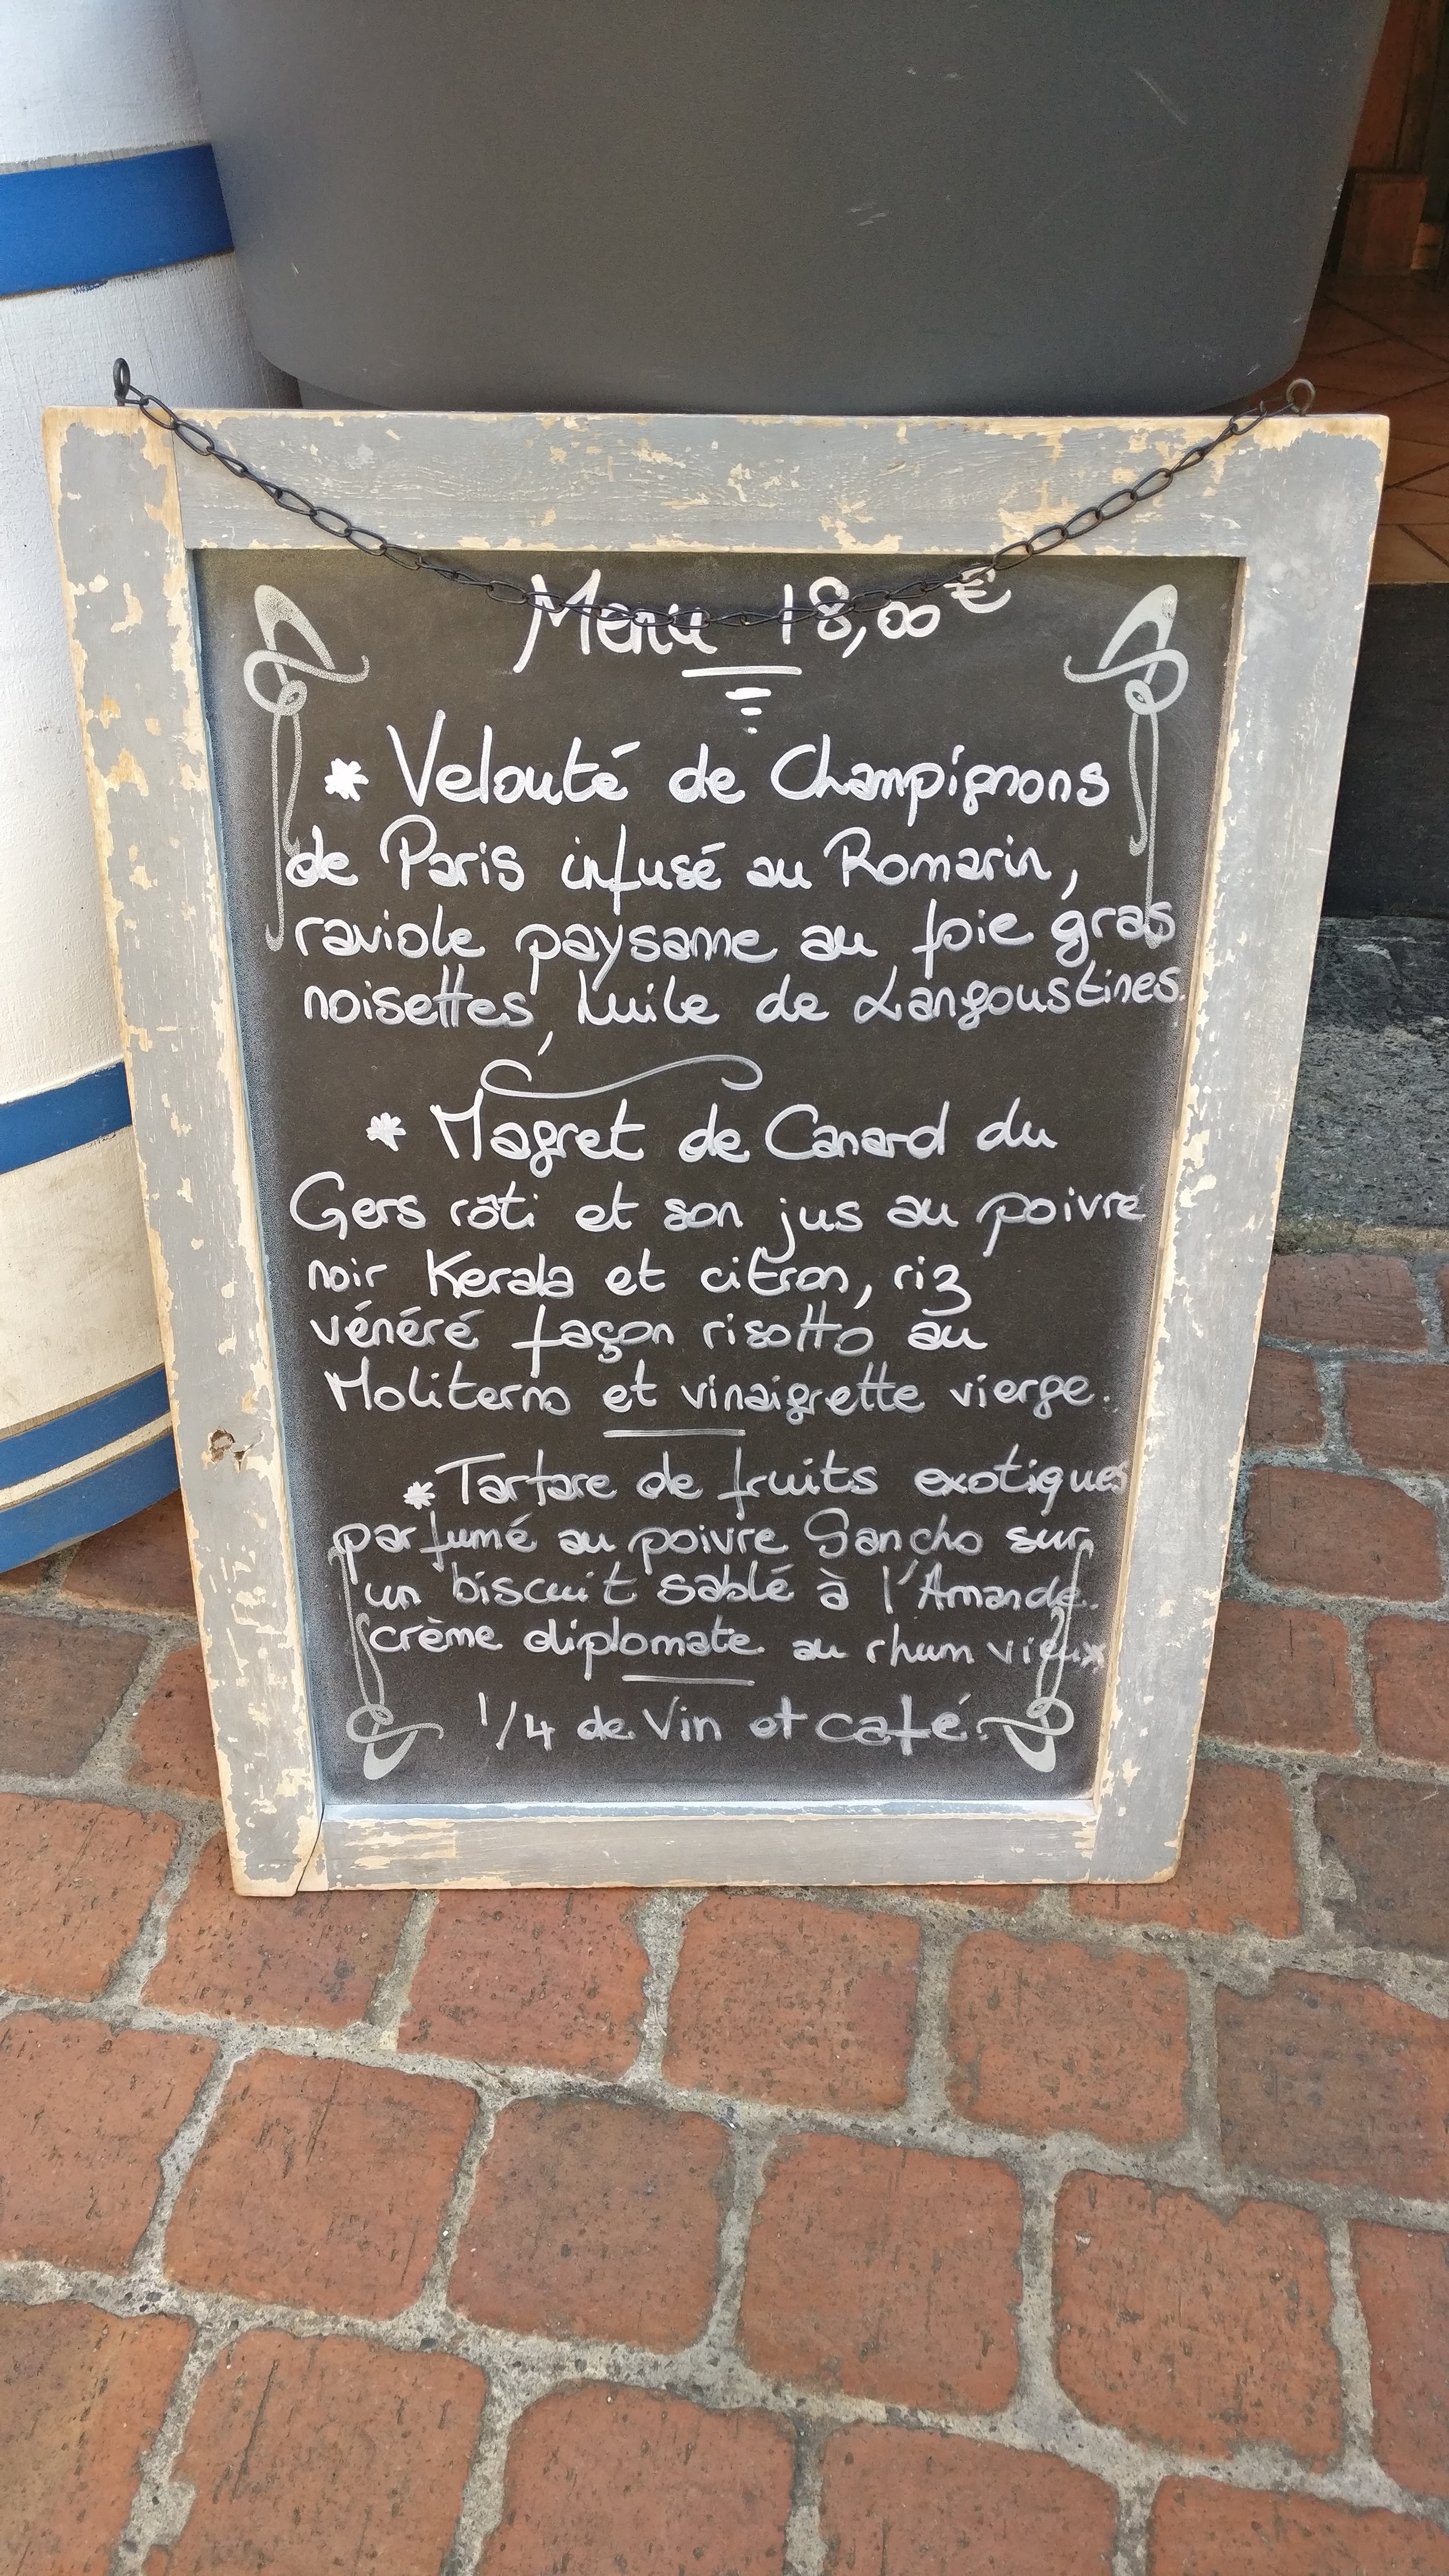 Menu 18,00€
* Velouté de Champignons
de Paris infusé au Romarin,
raviole paysanne au foie gras
noisettes, huile de Langoustines.
* Magret de Canard du
Gers rôti et son jus au poivre
noir Kerala et citron, riz
vénéré façon risotto au
Moliterno et vinaigrette vierge.
* Tartare de fruits exotiques
parfumé au poivre Sancho sur
un biscuit sablé à l'Amande.
crème diplomate au rhum vieux
1/4 de Vin et café.